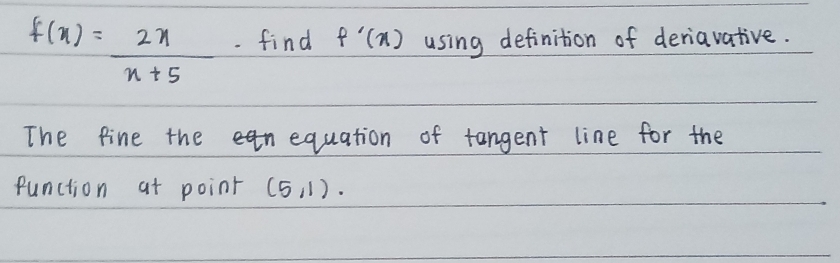 f(x) = 2x / x + 5 . find f'(x) using definition of deriavative.
The fine the eqn equation of tangent line for the
function at point (5,1).